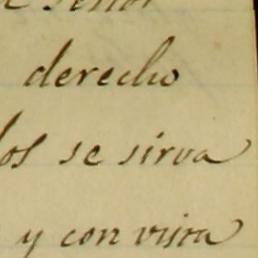 derecho
los se sirva
y con vista